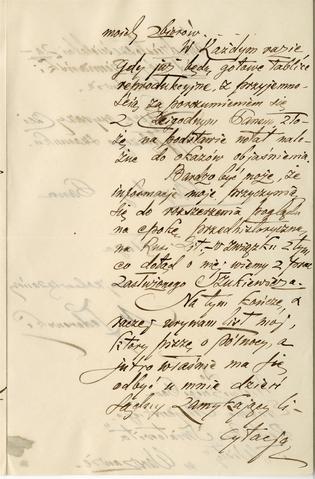 moich zbiorów.
W każdym razie
gdy już będą gotowe tablice
reprodukcyjne, z przyjemno-
ścią za porozumieniem się
z Czcigodnym Panem zło-
żę na podstawie notat nale-
żne do okazów objaśnienia.
Bardzo być może, że
informacje moje przyczynią
się do rozszerzenia poglądu
na epokę przedhistoryczną
na Rusi Lit., w związku z tym
co dotąd o niej wiemy z prac
zasłużonego Szukiewicza.
Na tym kończę, a
raczej urywam list mój,
który piszę o północy, a
jutro właśnie ma się
odbyć u mnie dzień
zamykający li-
cytację